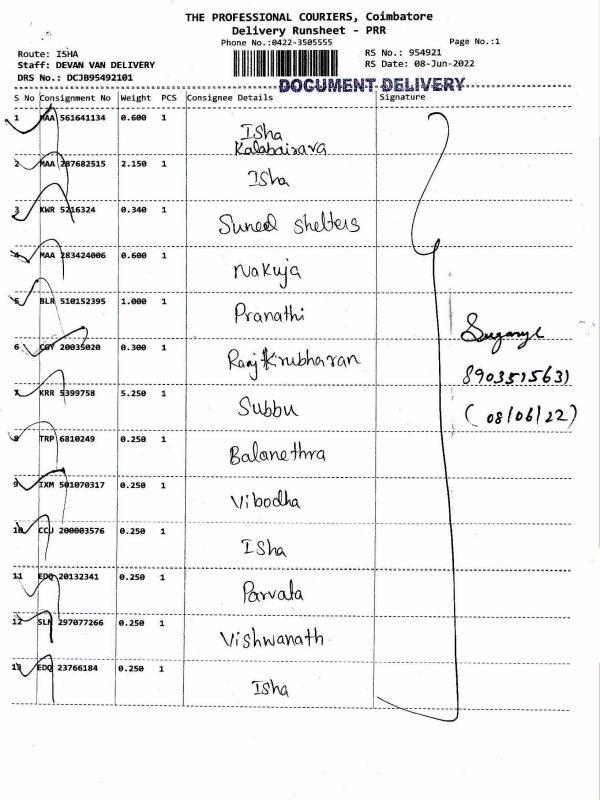 THE PROFESSIONAL COURIERS, Coimbatore
Delivery Runsheet - PRR
Phone No.:0422-3505555
Page No.:1
Route: ISHA
RS No.: 954921
Staff: DEVAN VAN DELIVERY
RS Date: 08-Jun-2022
DRS No.: DCJB95492101
DOCUMENT DELIVERY
S No Consignment No Weight PCS Consignee Details Signature
1 MAA 561641134 0.600 1 Isha Kalabairava
2 MAA 287682515 2.150 1 Isha
3 KWR 5216324 0.340 1 Suneel Shelters
4 MAA 283424006 0.600 1 Nakuja
5 BLR 510152395 1.000 1 Pranathi
6 CGY 20035020 0.300 1 Raaj Kirubharan
7 KRR 5399758 5.250 1 Subbu
8 TRP 6810249 0.250 1 Balanethra
9 IXM 501070317 0.250 1 Vibodha
10 CCU 200003576 0.250 1 Isha
11 EDQ 20132341 0.250 1 Parvata
12 SLM 297077266 0.250 1 Vishwanath
13 EDQ 23766184 0.250 1 Isha
8903515631
(08/06/22)